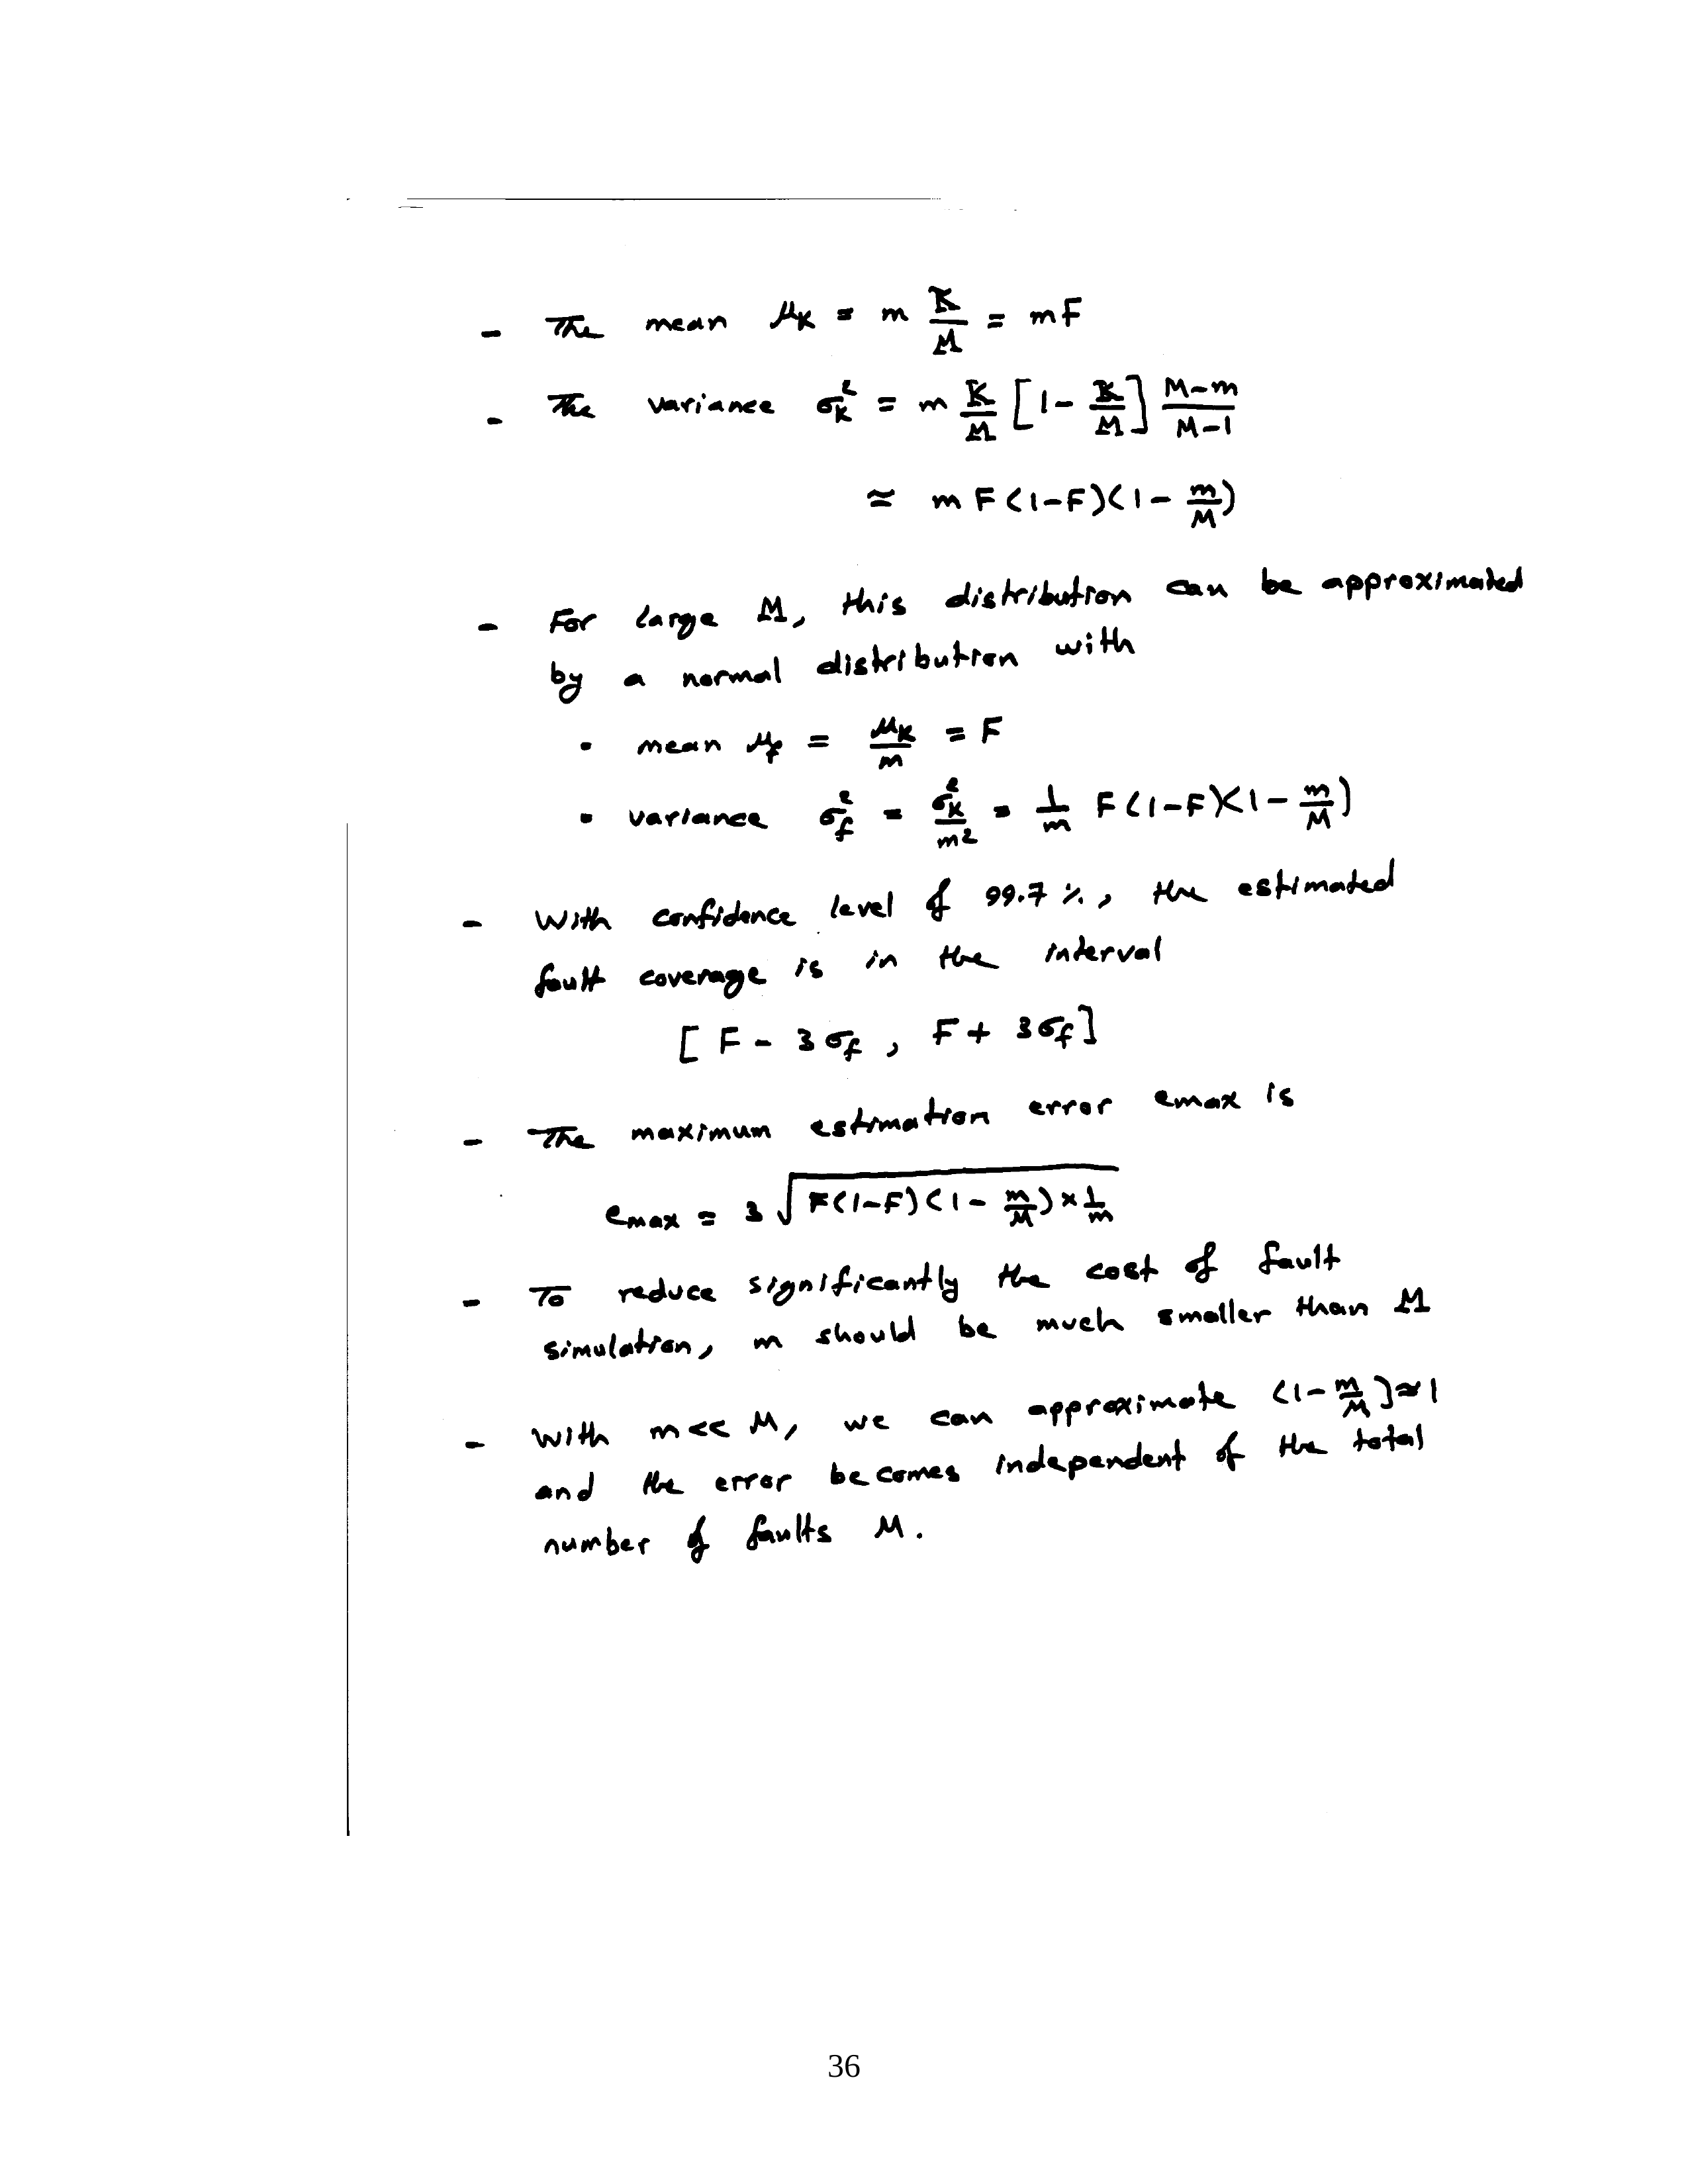 - The mean μ_K = m K/M = mF
- The variance σ_K^2 = m K/M [1 - K/M] (M-m)/(M-1)
≈ m F(1-F)(1 - m/M)
- For large M, this distribution can be approximated
by a normal distribution with
• mean μ_f = μ_K/m = F
• variance σ_f^2 = σ_K^2/m^2 = 1/m F(1-F)(1 - m/M)
- With confidence level of 99.7 %, the estimated
fault coverage is in the interval
[F - 3σ_f , F + 3σ_f]
- The maximum estimation error emax is
e_max = 3 √(F(1-F)(1 - m/M) × 1/m)
- To reduce significantly the cost of fault
simulation, m should be much smaller than M
- With m << M, we can approximate (1 - m/M) ≈ 1
and the error becomes independent of the total
number of faults M.
36